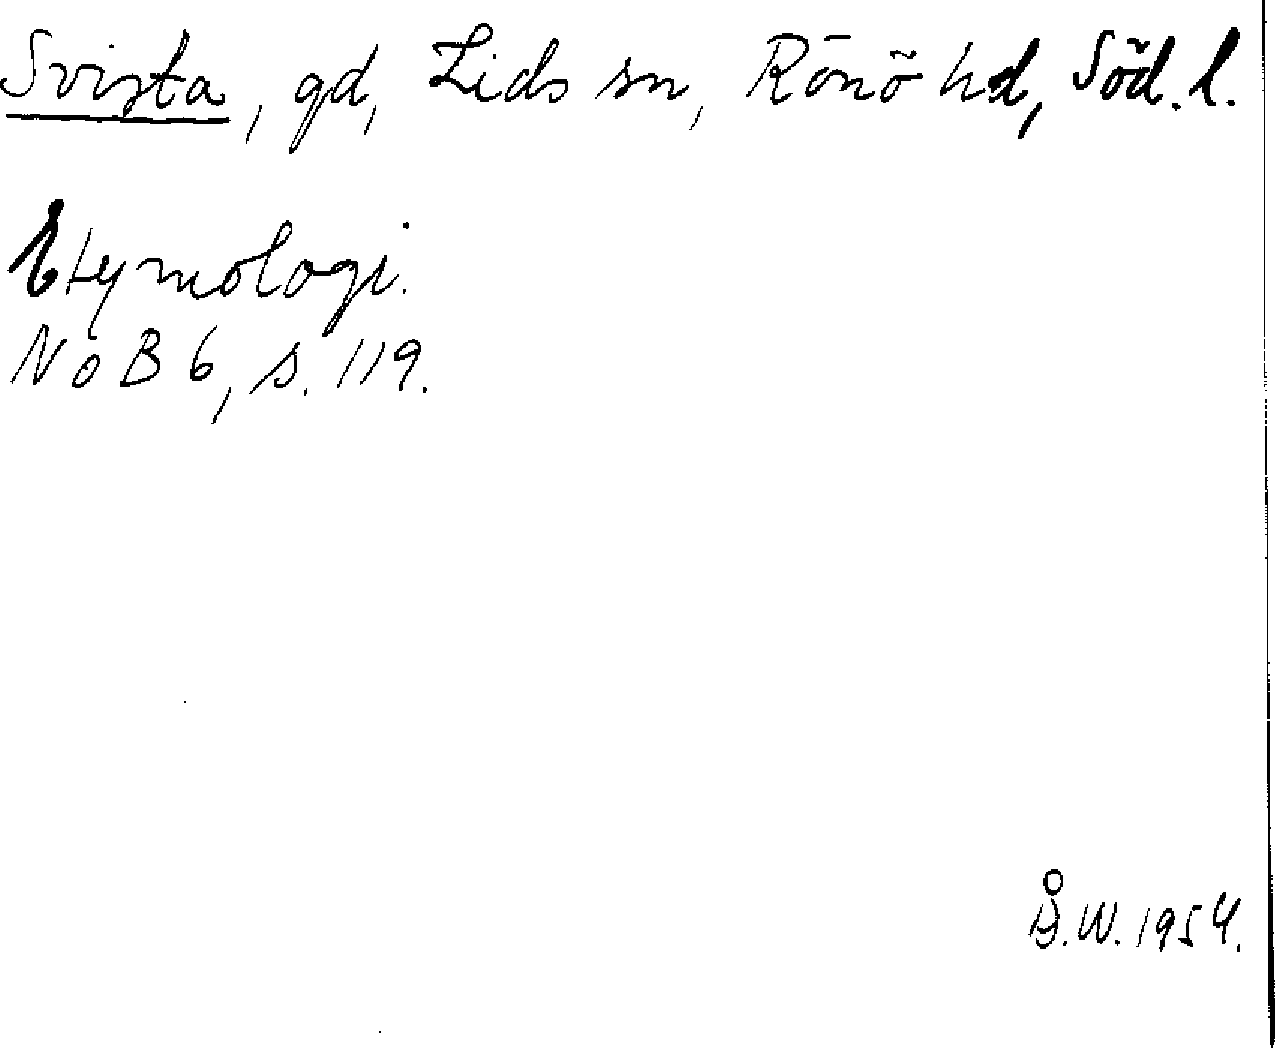 Svista, gd, Lids sn, Rönö hd, Söd.l.
Etymologi.
NoB 6, s. 119.
Å.W. 1954.